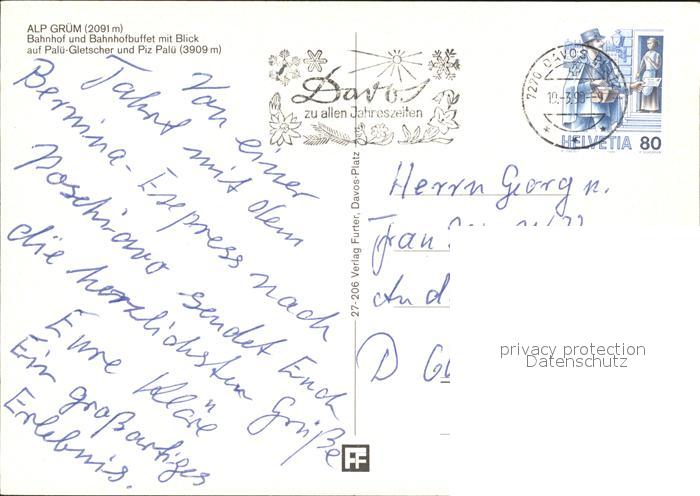 ALP GRÜM (2091 m)
Bahnhof und Bahnhofbuffet mit Blick
auf Palü-Gletscher und Piz Palü (3909 m)
Von einer
Fahrt mit dem
Bernina-Express nach
Poschiavo sendet Euch
die herzlichsten Grüße
Eure Kläre
Ein großartiges
Erlebnis.
Davos
zu allen Jahreszeiten
7270 DAVOS PLATZ
HELVETIA 80
27-206 Verlag Furter, Davos-Platz
Herrn Georg u.
Frau
An d
D
FF
privacy protection
Datenschutz